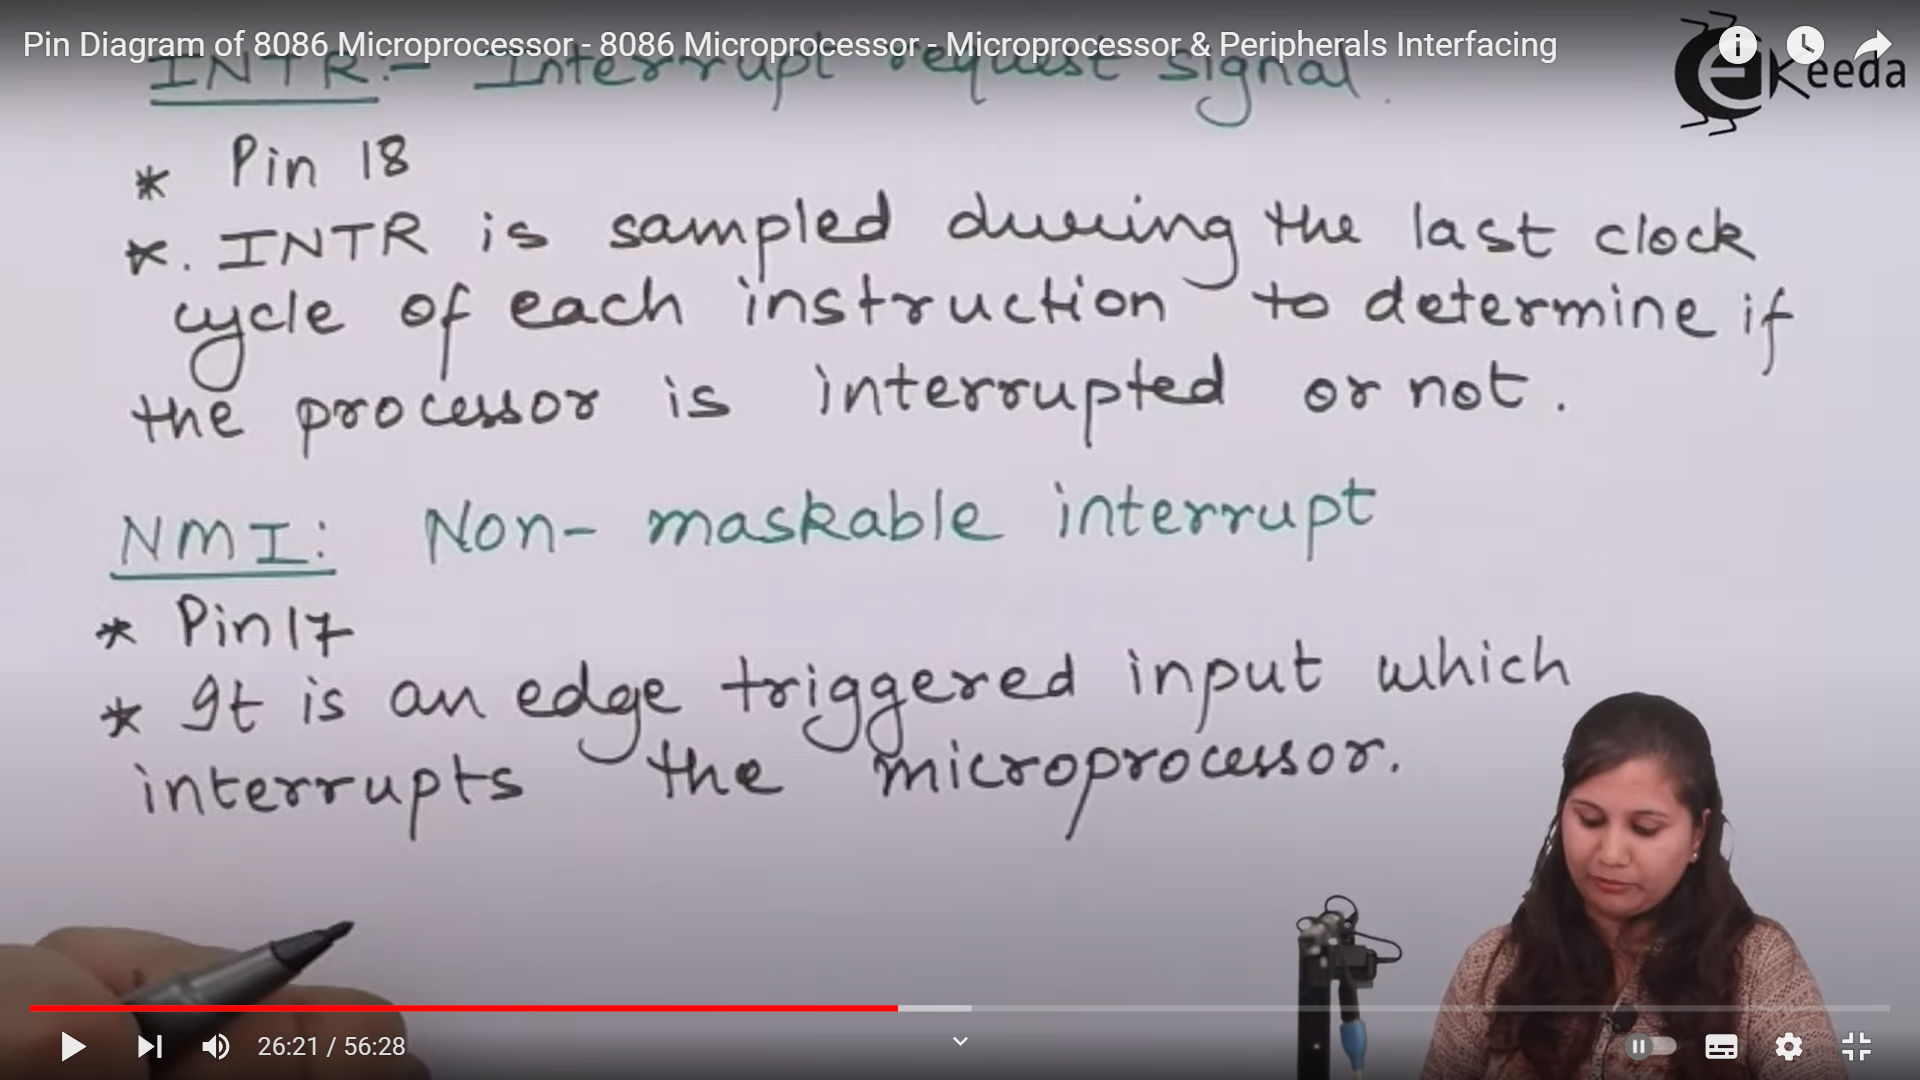 Pin Diagram of 8086 Microprocessor - 8086 Microprocessor - Microprocessor & Peripherals Interfacing
eKeeda
INTR:- Interrupt request signal.
* Pin 18
*. INTR is sampled during the last clock
cycle of each instruction to determine if
the processor is interrupted or not.
NMI: Non-maskable interrupt
* Pin 17
* It is an edge triggered input which
interrupts the microprocessor.
26:21 / 56:28